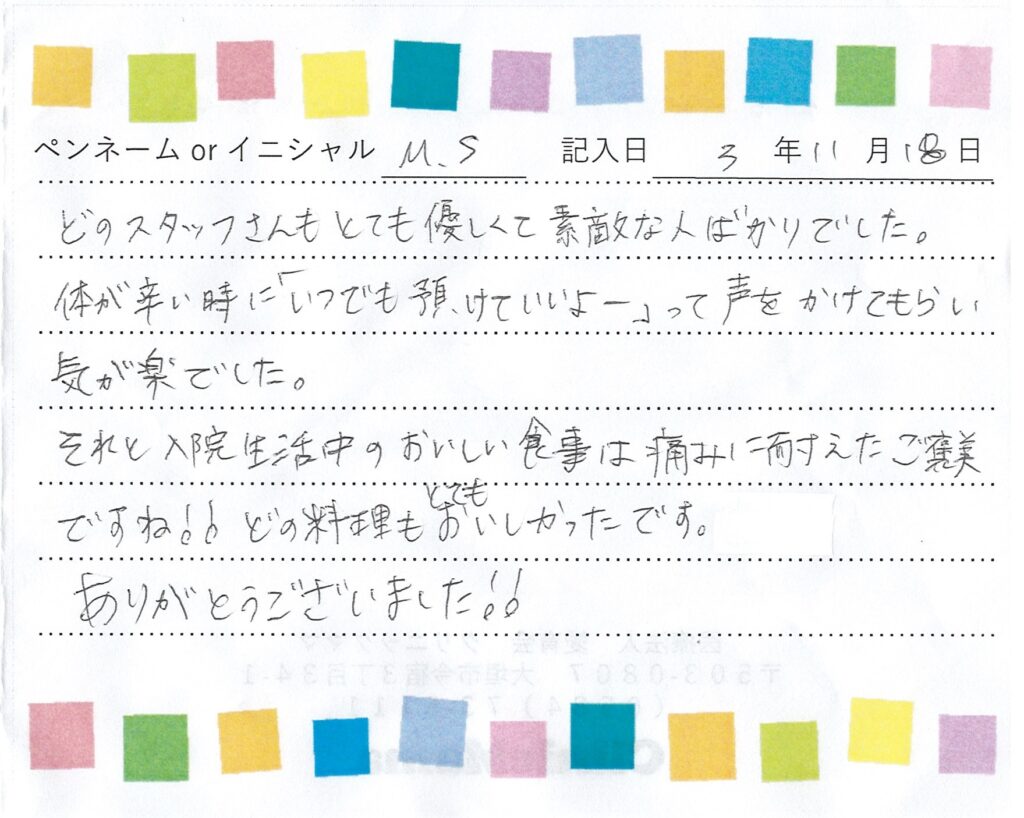 ペンネーム or イニシャル M.S 記入日 3 年 11 月 18 日
どのスタッフさんもとても優しくて素敵な人ばかりでした。
体が辛い時に「いつでも預けていいよー」って声をかけてもらい
気が楽でした。
それと入院生活中のおいしい食事は痛みに耐えたご褒美
ですね!! どの料理もとてもおいしかったです。
ありがとうございました!!
医療法人 愛育会 クリニックママ
〒503-0807 大垣市今宿3丁目34-1